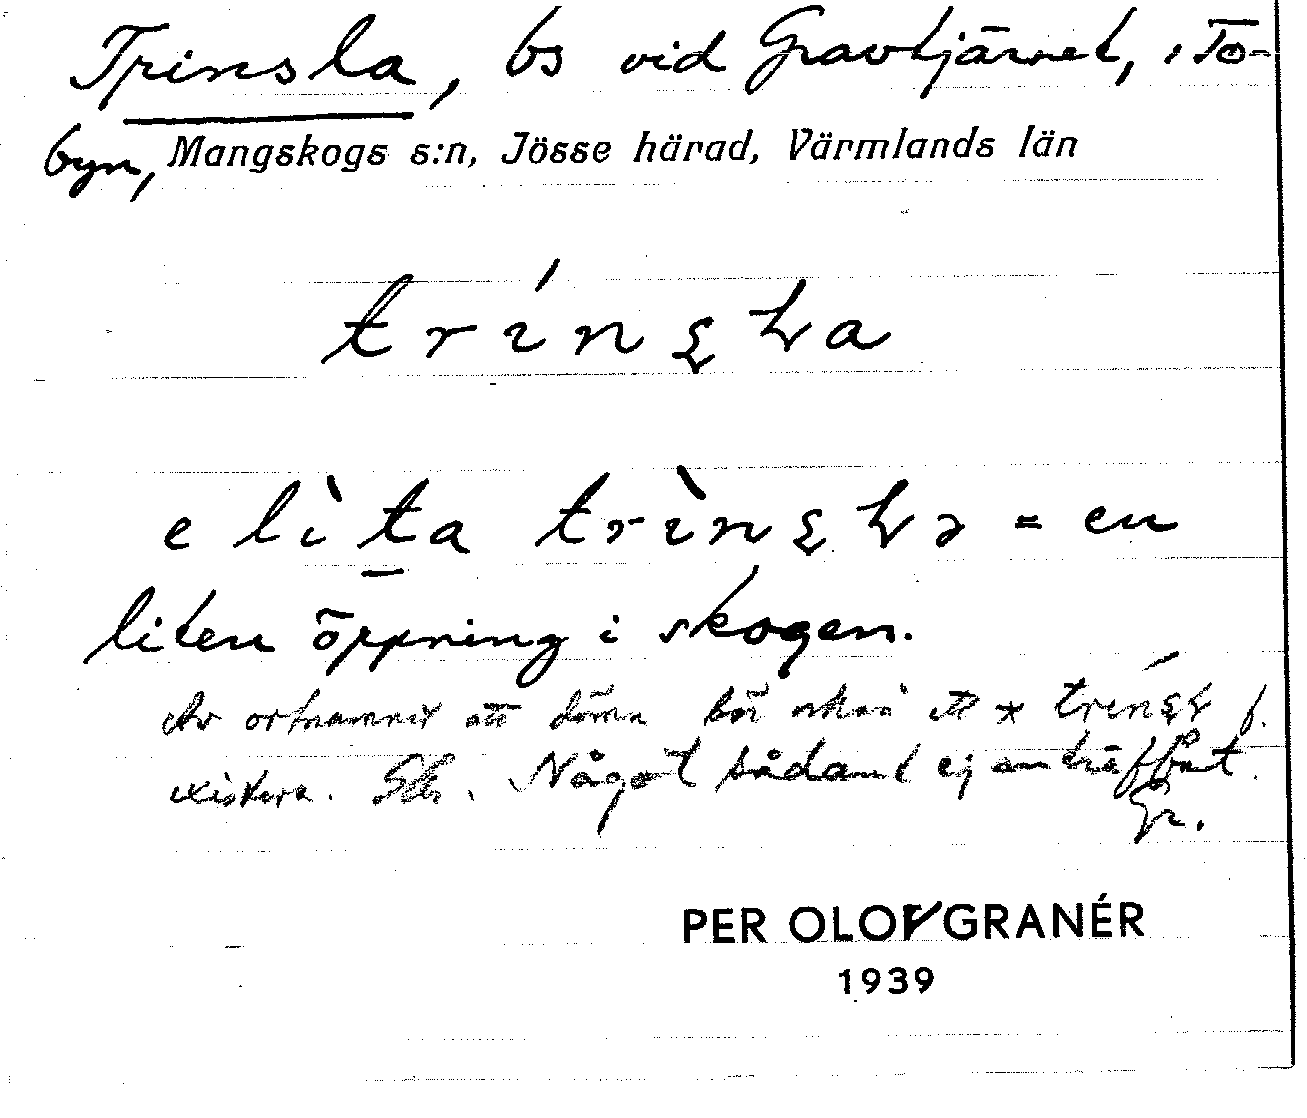 Trinsla, bs vid Gravtjärnet, i To-
byn, Mangskogs s:n, Jösse härad, Värmlands län
trínʂɽa
e lìta trìnʂɽə = en
liten öppning i skogen.
Av ortnamnet att döma bör också ett * trínʂɽ f.
existera. Något sådant ej anträffat.
Gr.
PER OLOV GRANÉR
1939